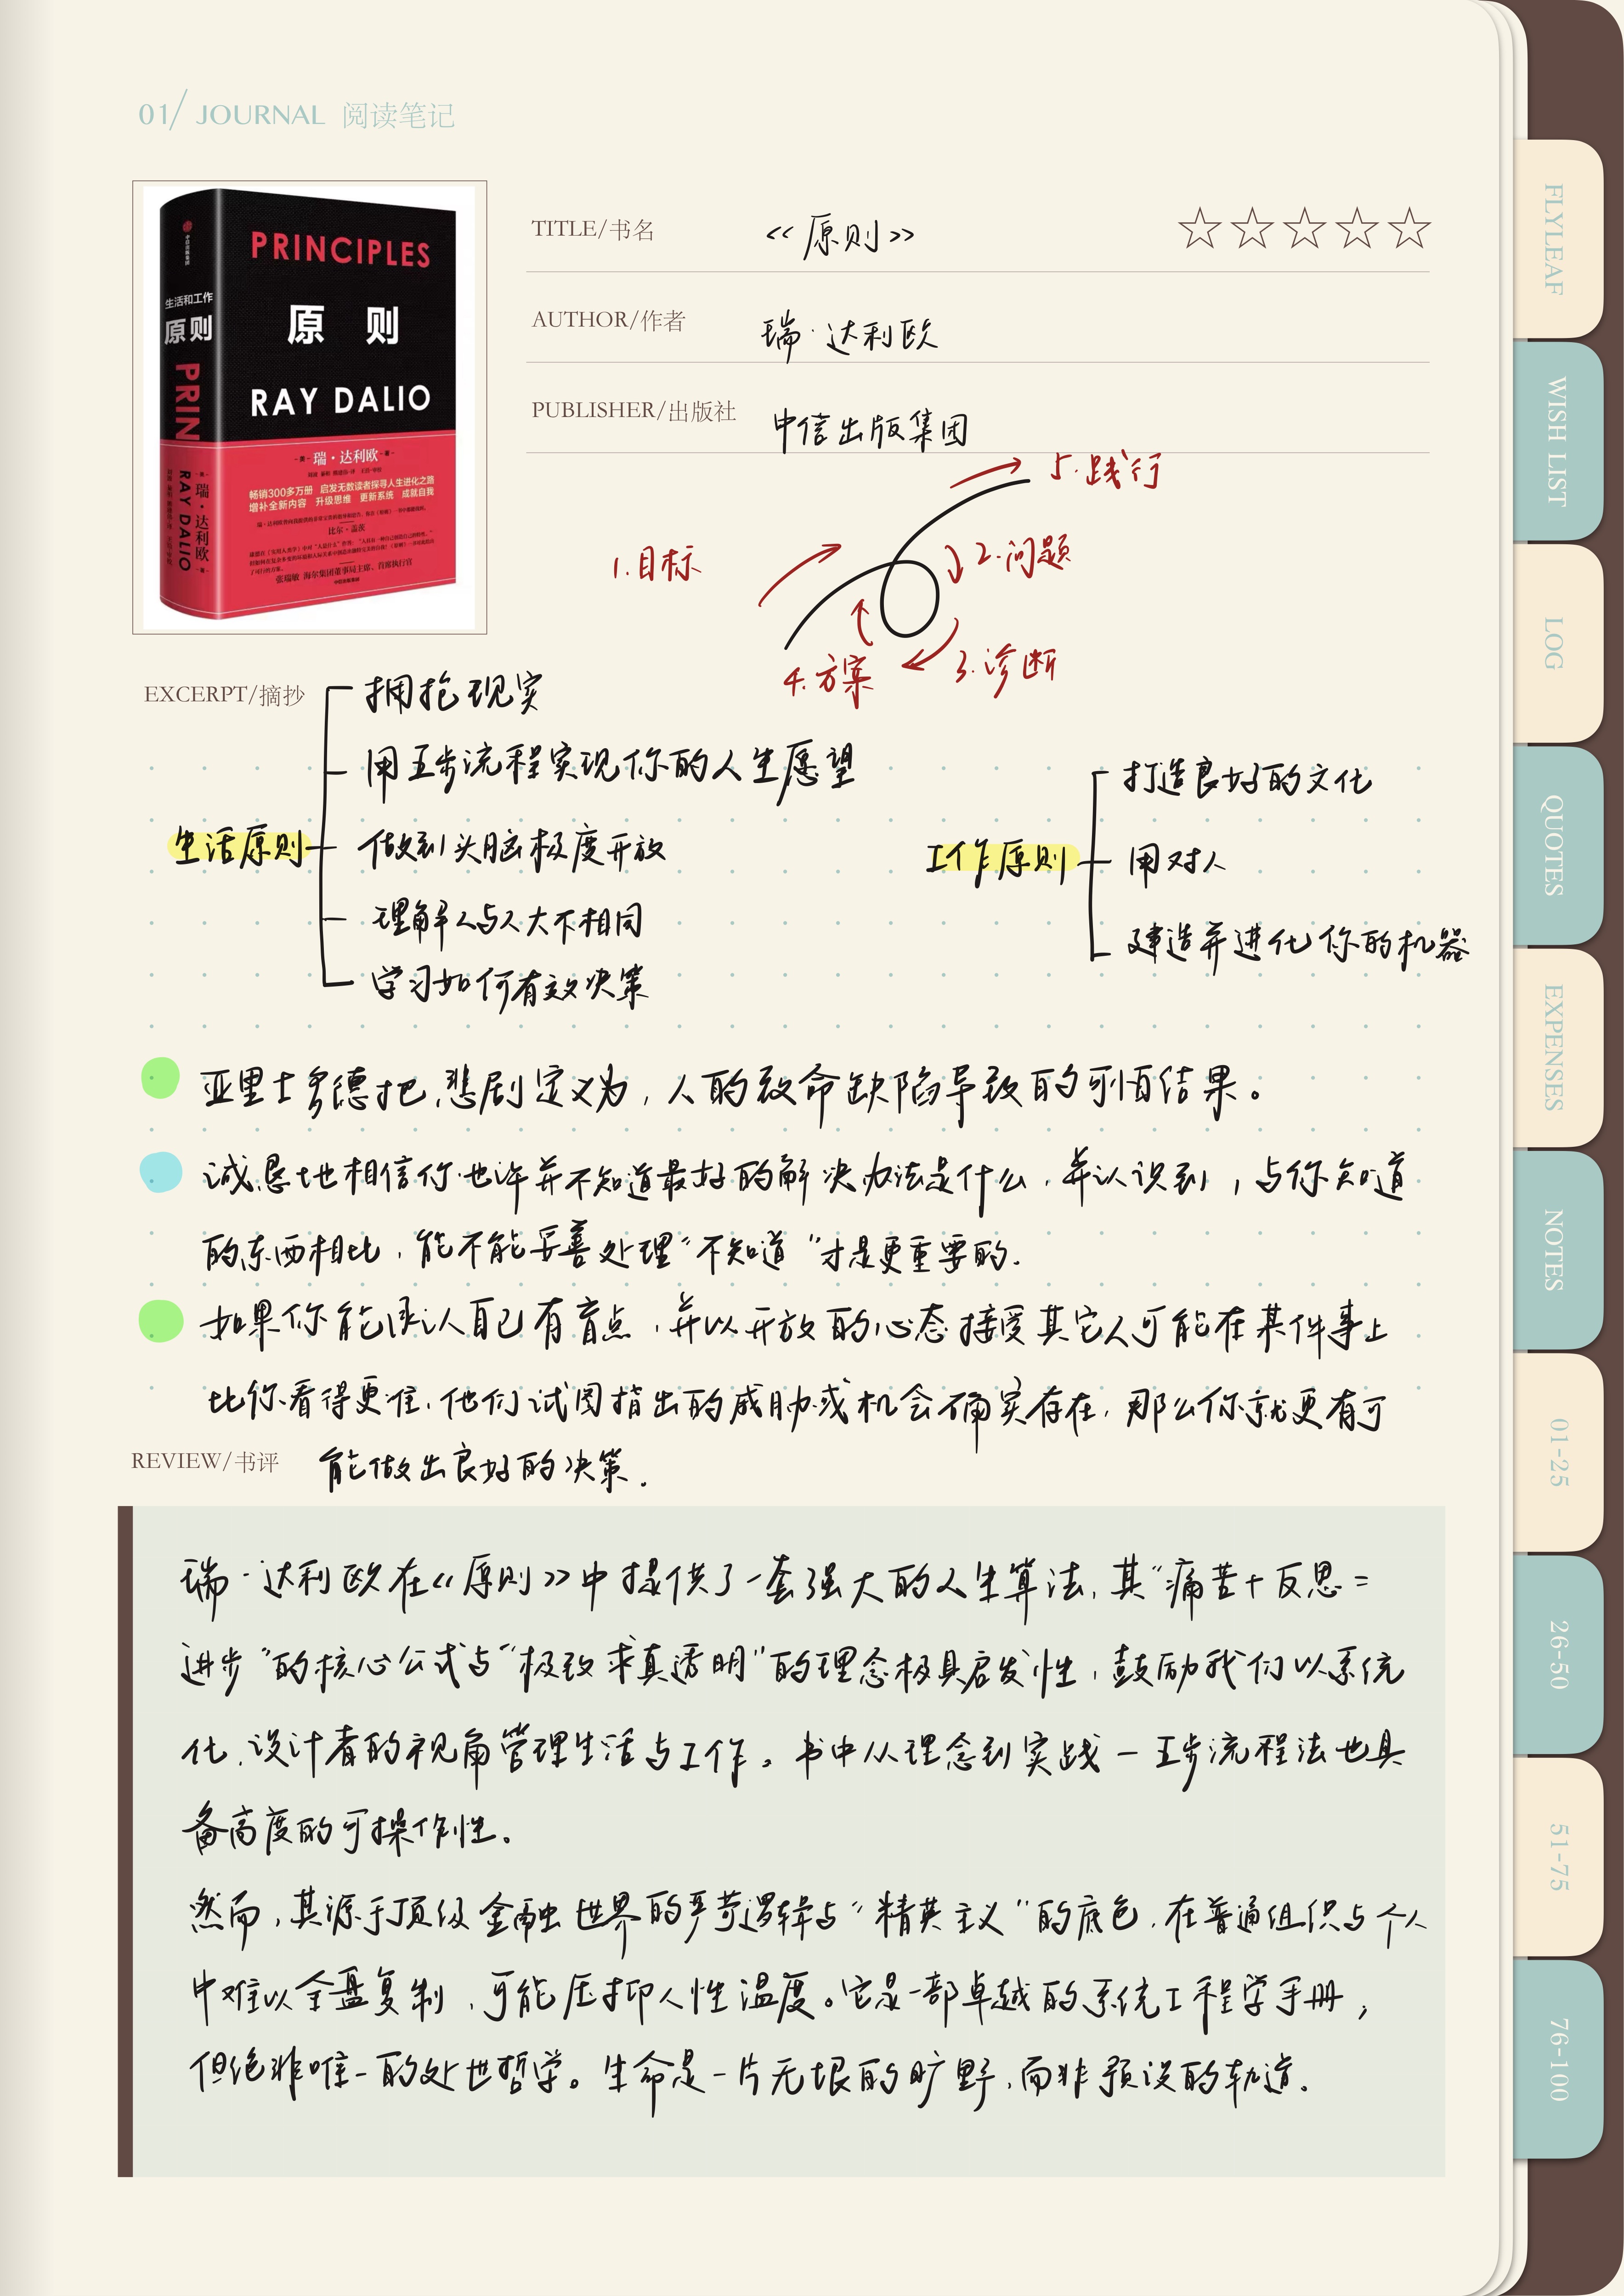 01/ JOURNAL 阅读笔记
PRINCIPLES
原 则
RAY DALIO
生活和工作
原则
PRIN
瑞·达利欧
RAY DALIO
瑞·达利欧
畅销300多万册 启发无数读者探寻人生进化之路
增补全新内容 升级思维 更新系统 成就自我
比尔·盖茨
张瑞敏 海尔集团董事局主席、首席执行官
TITLE/书名 《原则》
AUTHOR/作者 瑞·达利欧
PUBLISHER/出版社 中信出版集团
1.目标
2.问题
3.诊断
4.方案
5.践行
EXCERPT/摘抄
生活原则
拥抱现实
用五步流程实现你的人生愿望
做到头脑极度开放
理解人与人大不相同
学习如何有效决策
工作原则
打造良好的文化
用对人
建造并进化你的机器
亚里士多德把悲剧定义为，人的致命缺陷导致的可怕结果。
诚恳地相信你也许并不知道最好的解决办法是什么，并认识到，与你知道
的东西相比，能不能妥善处理“不知道”才是更重要的.
如果你能承认自己有盲点，并以开放的心态接受其它人可能在某件事上
比你看得更准，他们试图指出的威胁或机会确实存在，那么你就更有可
能做出良好的决策.
REVIEW/书评
瑞·达利欧在《原则》中提供了一套强大的人生算法，其“痛苦+反思=
进步”的核心公式与“极致求真透明”的理念极具启发性，鼓励我们以系统
化、设计者的视角管理生活与工作。书中从理念到实践一五步流程法也具
备高度的可操作性。
然而，其源于顶级金融世界的严苛逻辑与“精英主义”的底色，在普通组织与个人
中难以全盘复制，可能压抑人性温度。它是一部卓越的系统工程学手册，
但绝非唯一的处世哲学。生命是一片无垠的旷野，而非预设的轨道.
FLYLEAF
WISH LIST
LOG
QUOTES
EXPENSES
NOTES
01-25
26-50
51-75
76-100